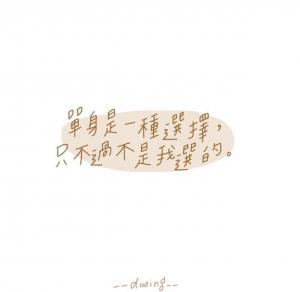 單身是一種選擇，
只不過不是我選的。
__dosing__